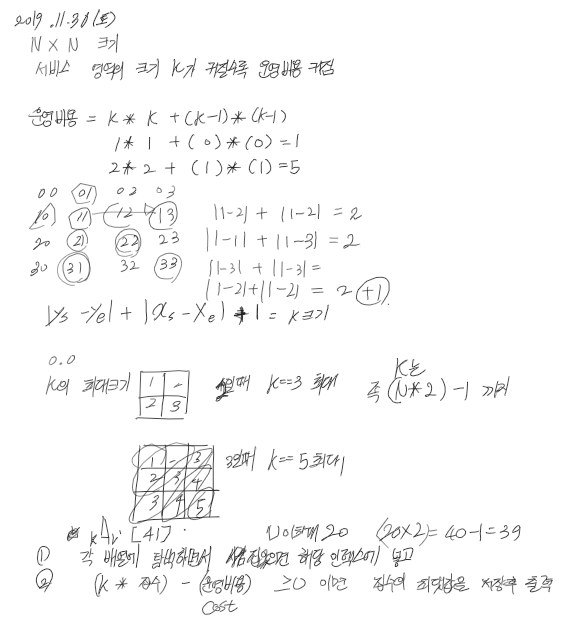 2019.11.30(토)
N X N 크기
서비스 영역의 크기 K가 커질수록 운영비용 커짐
운영비용 = K * K + (K-1)*(K-1)
1 * 1 + (0)*(0) = 1
2 * 2 + (1)*(1) = 5
00 01 02 03
10 11 12 13 |1-2| + |1-2| = 2
20 21 22 23 |1-1| + |1-3| = 2
30 31 32 33 |1-3| + |1-3| =
|1-2|+|1-2| = 2 +1
|ys - ye| + |xs - xe| + 1 = K크기
0.0
K의 최대크기 1 - 2일때 K==3 최대 K는
2 3 즉 (N*2)-1 까지
1 - 3 3일때 K== 5 최대
2 3 4
3 4 5
* kArr [41] N이최대 20 (20X2)= 40-1=39
① 각 배열에 탐색하면서 해당 인덱스에 넣고
② (K * 점수) - (운영비용) ≥0 이면 점수의 최댓값을 저장후 출력
cost